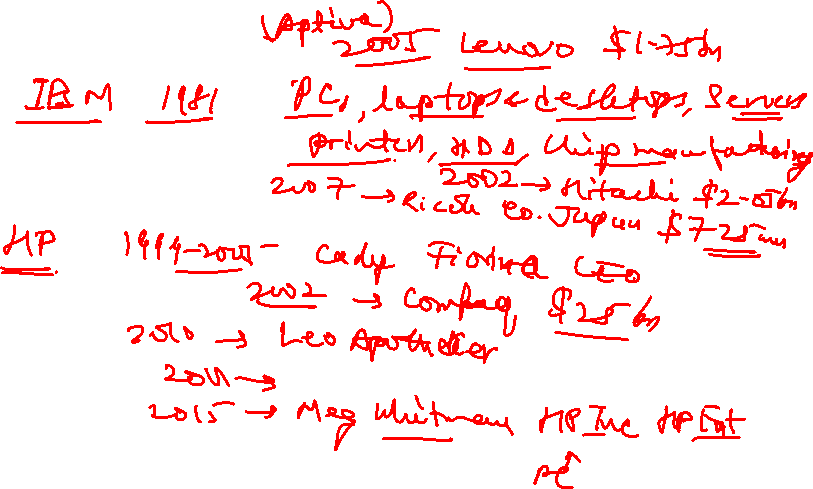 (Aptiva)
2005 Lenovo $1.75bn
IBM 1981 PCs, laptops & desktops, Servers
printers, HDD, Chip manufacturing
2002 → Hitachi $2.05bn
2007 → Ricoh Co. Japan $725mn
HP 1999-2005 Carly Fiorina CEO
2002 → Compaq $25bn
2010 → Leo Apotheker
2011 →
2015 → Meg Whitman HP Inc HP Ent
PC